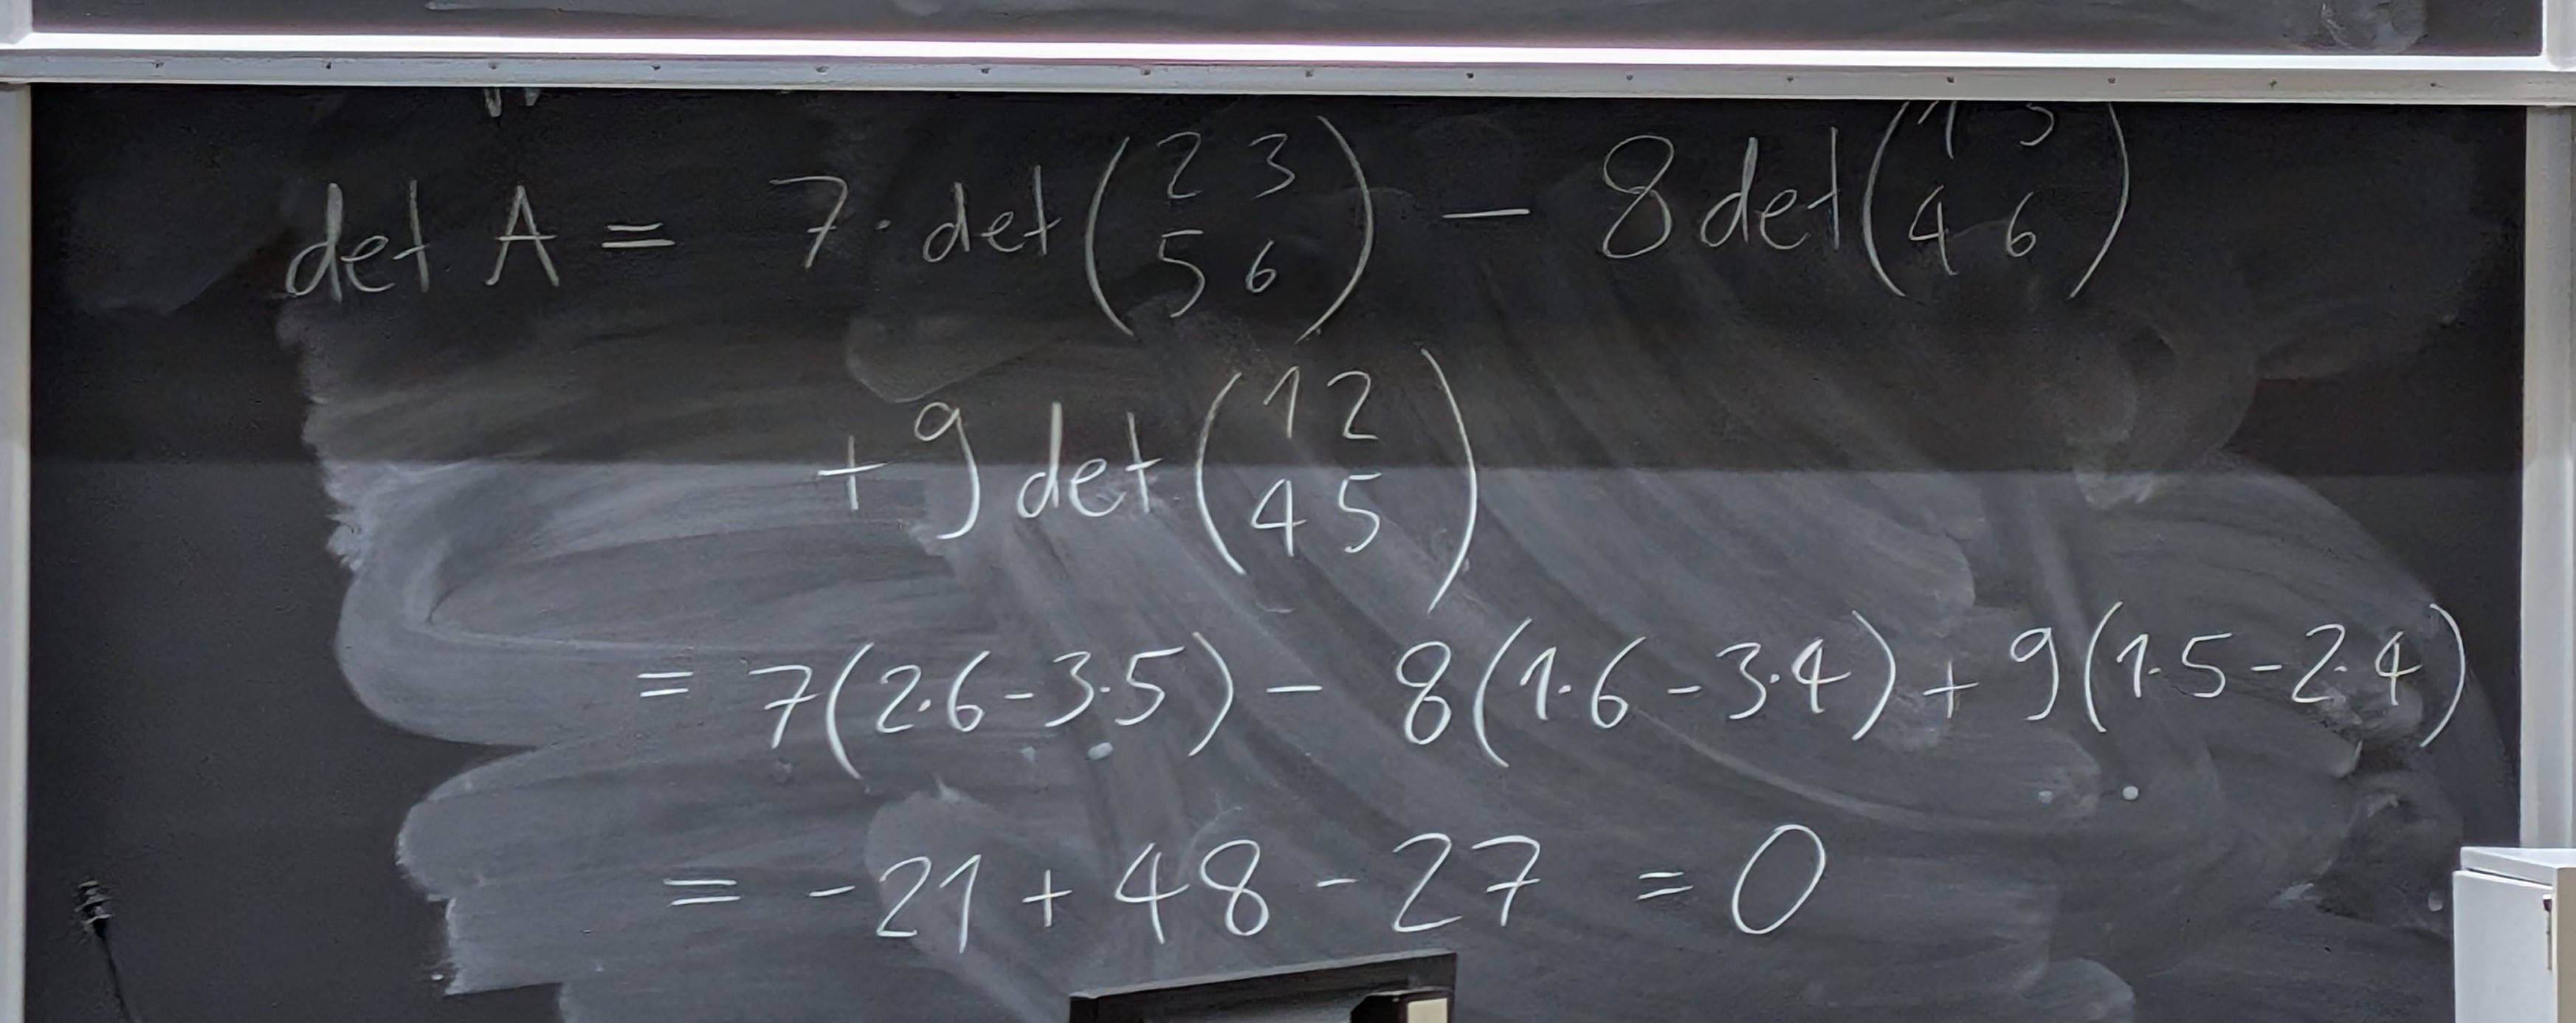 det A = 7 · det ( 2 3 ; 5 6 ) − 8 det ( 1 3 ; 4 6 )
+ 9 det ( 1 2 ; 4 5 )
= 7(2·6−3·5) − 8(1·6−3·4) + 9(1·5−2·4)
= −21 + 48 − 27 = 0